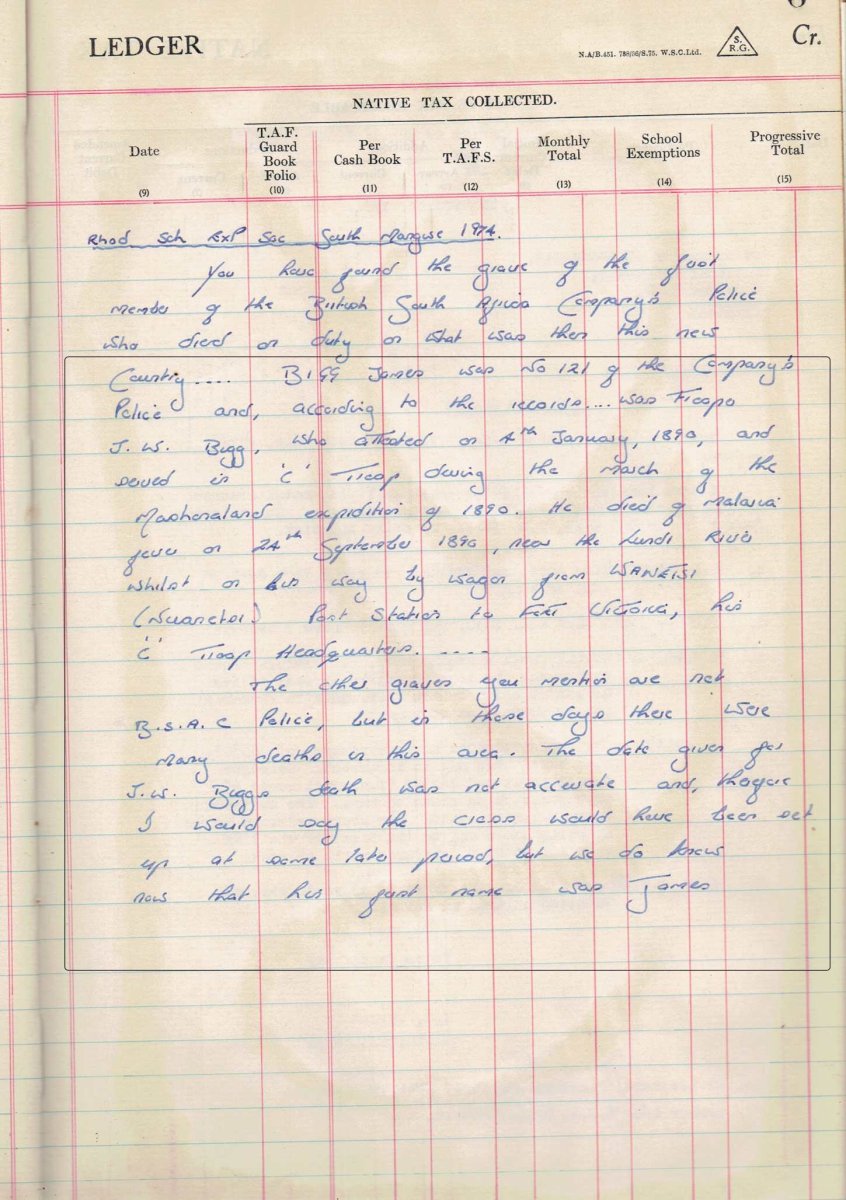 LEDGER
N.A/B.451. 788/56/S.75. W.S.C.Ltd.
S.
R.G.
Cr.
NATIVE TAX COLLECTED.
Date
(9)
T.A.F.
Guard
Book
Folio
(10)
Per
Cash Book
(11)
Per
T.A.F.S.
(12)
Monthly
Total
(13)
School
Exemptions
(14)
Progressive
Total
(15)
Rhod Sch Exp Soc South Mangwe 1974.
You have found the grave of the first
member of the British South Africa Company's Police
who died on duty on what was then this new
Country.... BIGG James was No 121 of the Company's
Police and, according to the records.... was Trooper
J. W. Bigg, who attested on 4th January, 1890, and
served in 'C' Troop during the march of the
Mashonaland expidition of 1890. He died of Malaria
fever on 24th September 1890, near the Lundi River
whilst on his way by wagon from WANETSI
(Nuanetsi) Post Station to FORT VICTORIA, his
'C' Troop Headquarters. ----
The other graves you mention are not
B.S.A.C Police, but in those days there were
many deaths in this area. The date given for
J.W. Biggs death was not accurate and, therefore
I would say the cross would have been set
up at some later period, but we do know
now that his first name was James